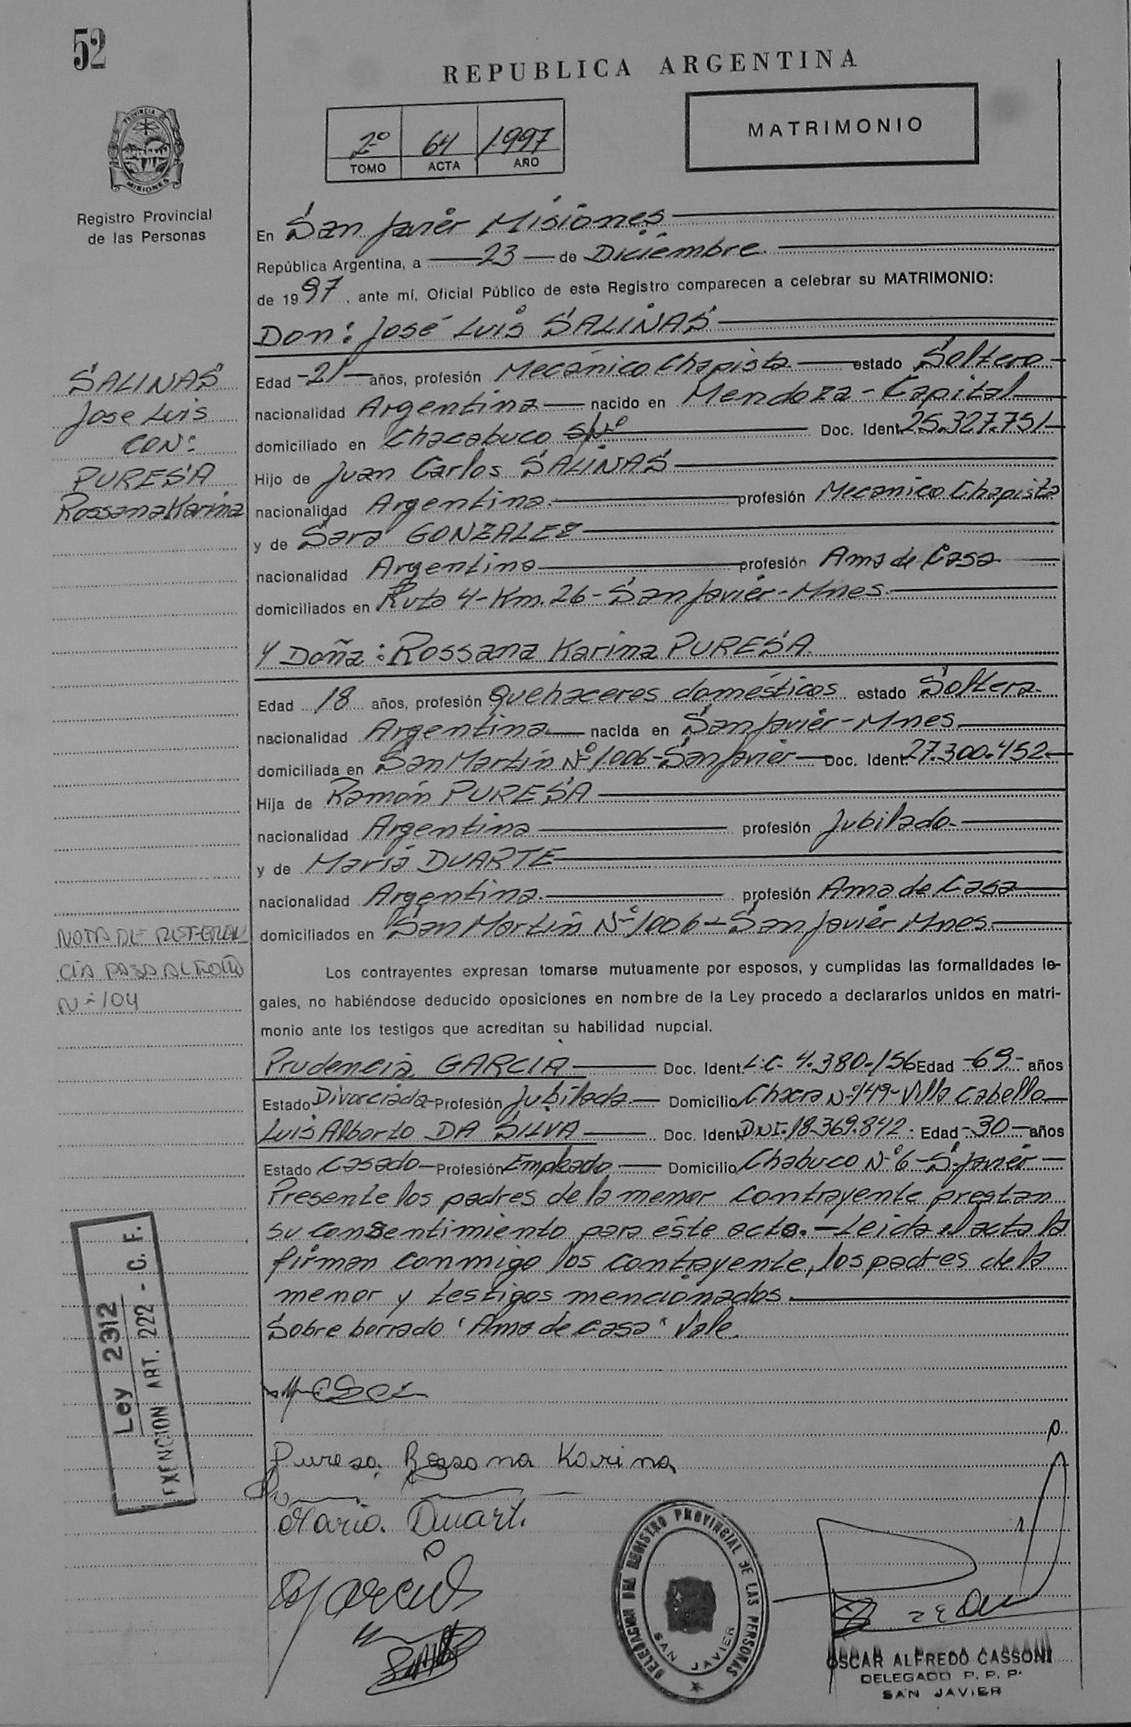 52
REPUBLICA ARGENTINA
2º 64 1997
TOMO ACTA AÑO
MATRIMONIO
PROVINCIA DE MISIONES
Registro Provincial
de las Personas
En San Javier Misiones
República Argentina, a 23 de Diciembre
de 1997, ante mi, Oficial Público de este Registro comparecen a celebrar su MATRIMONIO:
Don: José Luis SALINAS
Edad -21- años, profesión Mecánico Chapista estado Soltero
nacionalidad Argentina nacido en Mendoza - Capital
domiciliado en Chacabuco S/Nº Doc. Ident. 25.327.751
Hijo de Juan Carlos SALINAS
nacionalidad Argentina profesión Mecanico Chapista
y de Sara GONZALEZ
nacionalidad Argentina profesión Ama de Casa
domiciliados en Ruta 4 - Km. 26 - San Javier - Mnes.
SALINAS
Jose Luis
CON:
PURESA
Rossana Karina
Y Doña: Rossana Karina PURESA
Edad 18 años, profesión Quehaceres domésticos estado Soltera
nacionalidad Argentina nacida en San Javier - Mnes
domiciliada en San Martín Nº 1006 - San Javier Doc. Ident. 27.300.452
Hija de Ramón PURESA
nacionalidad Argentina profesión Jubilado
y de María DUARTE
nacionalidad Argentina profesión Ama de Casa
domiciliados en San Martín Nº 1006 - San Javier Mnes
NOTA DE REFEREN
CIA PASA AL FOLIO
Nº 104
Los contrayentes expresan tomarse mutuamente por esposos, y cumplidas las formalidades le-
gales, no habiéndose deducido oposiciones en nombre de la Ley procedo a declararlos unidos en matri-
monio ante los testigos que acreditan su habilidad nupcial.
Prudencia GARCIA Doc. Ident. L.C. 4.380.156 Edad -69- años
Estado Divorciada Profesión Jubilada Domicilio Chacra Nº 149 - Villa Cabello
Luis Alberto DA SILVA Doc. Ident. DNI. 18.369.842. Edad -30- años
Estado Casado Profesión Empleado Domicilio Chabuco Nº 6 - S. Javier
Presente los padres de la menor contrayente prestan
su consentimiento para éste acto. - Leida el acta la
firman conmigo los contrayente, los padres de la
menor y testigos mencionados.
Sobre borrado "Ama de casa" Vale.
Ley 2312
EXENCION ART. 222 - C. F.
Puresa Rossana Karina
Maria Duart.
DELEGACION DEL REGISTRO PROVINCIAL DE LAS PERSONAS
SAN JAVIER
OSCAR ALFREDO CASSONI
DELEGADO P. P. P.
SAN JAVIER